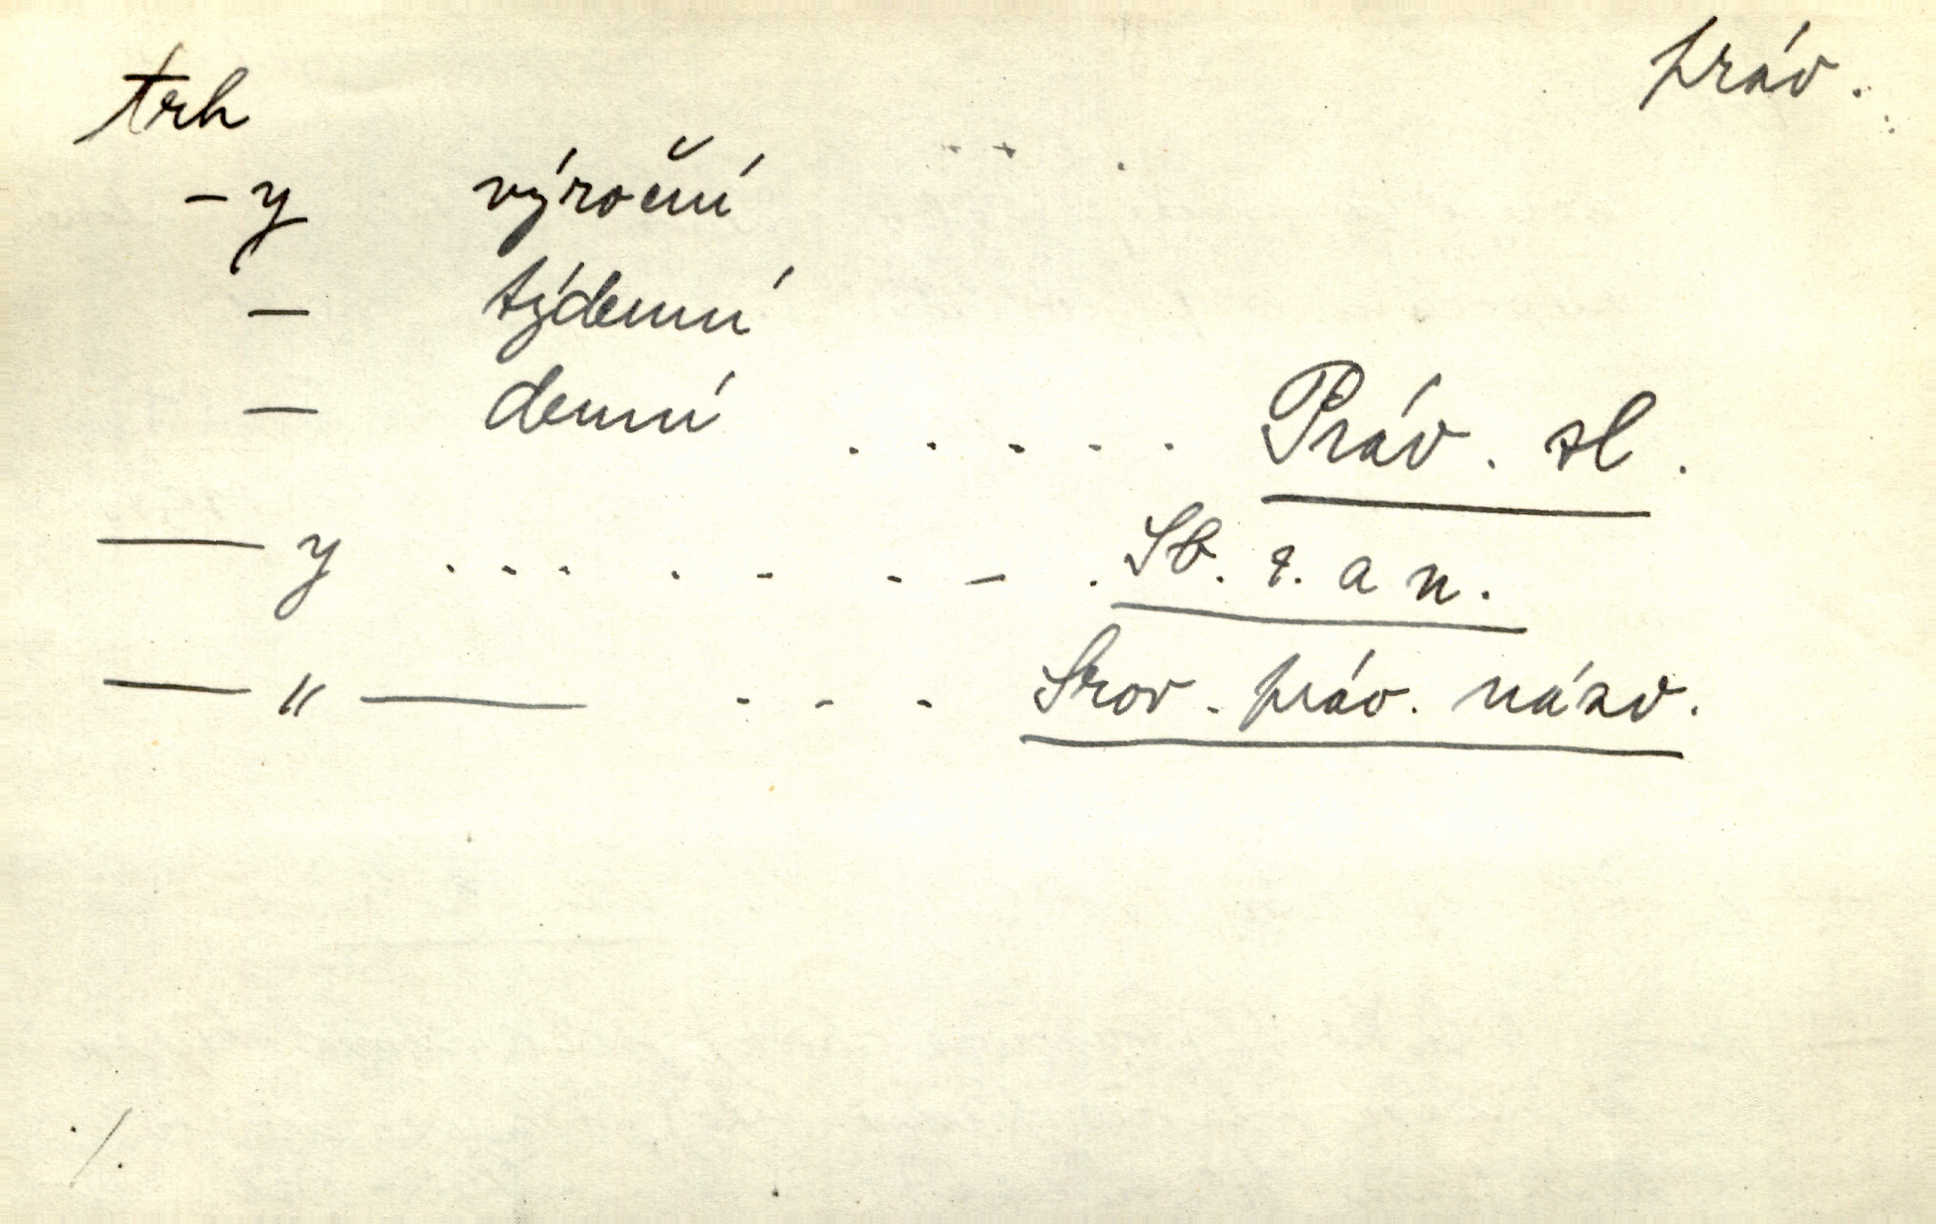 trh práv.
-y výroční
— týdenní
— denní . . . . . Práv. sl.
—— y . . . . . . - . Sb. z. a n.
—— " —— . . . Srov. práv. názv.
./.